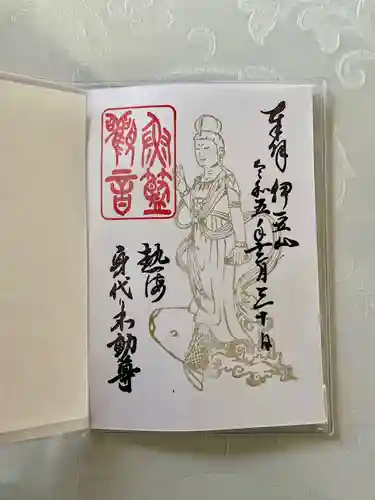 奉拝 伊豆山
令和五年十二月三十日
魚籃
觀音
熱海
身代り不動尊